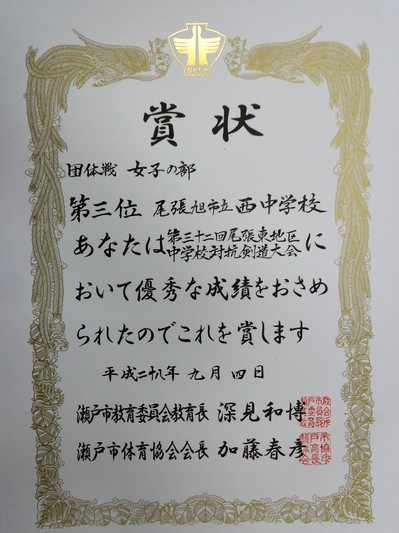 賞状
団体戦 女子の部
第三位 尾張旭市立西中学校
あなたは第三十二回尾張東地区中学校対抗剣道大会に
おいて優秀な成績をおさめ
られたのでこれを賞します
平成二十八年 九月 四日
瀬戸市教育委員会教育長 深見和博
瀬戸市体育協会会長 加藤春彦